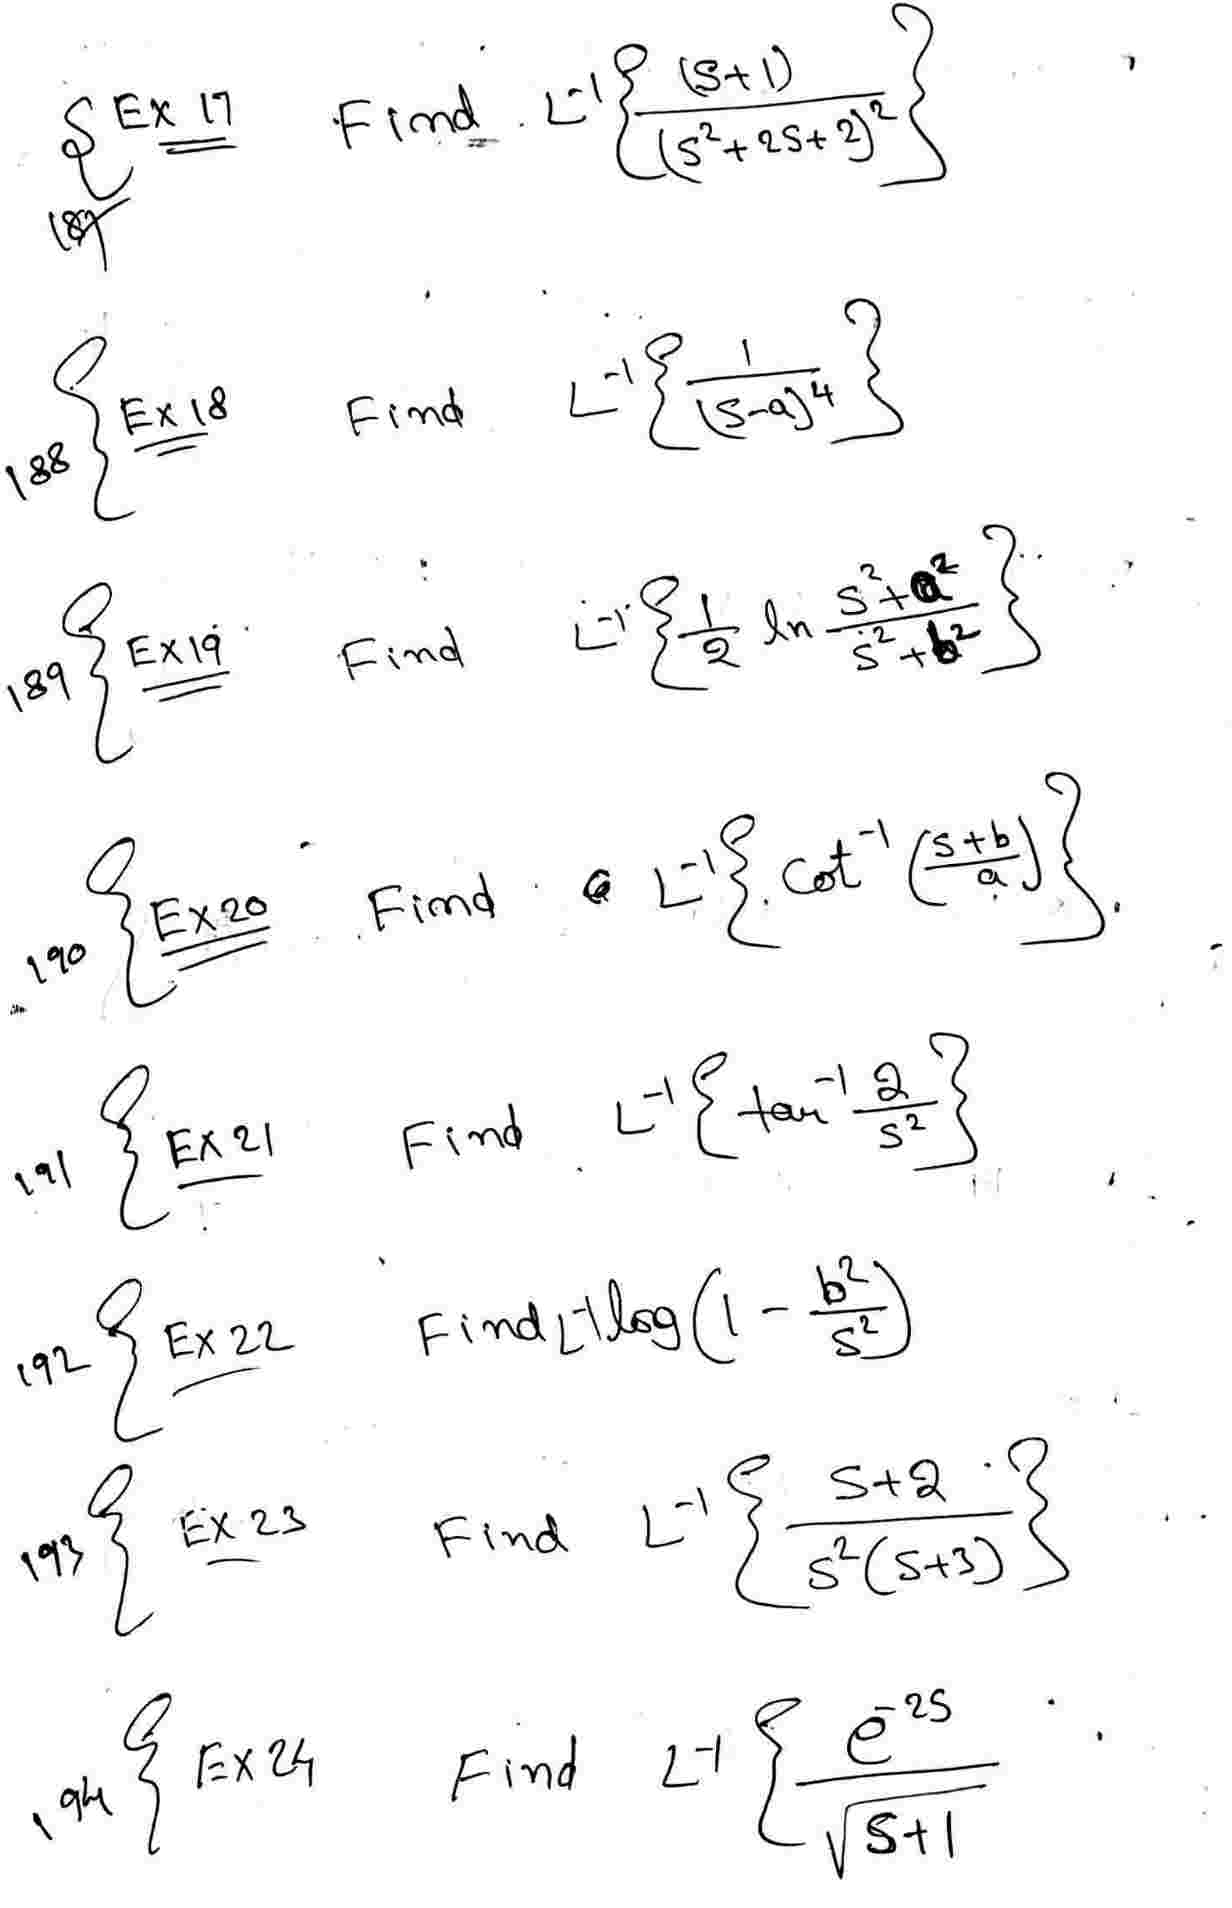 Ex 17 Find L⁻¹{ (S+1) / (s²+2s+2)² }
187
188 { Ex 18 Find L⁻¹{ 1 / (s-a)⁴ }
189 { Ex 19 Find L⁻¹{ 1/2 ln (s²+a²)/(s²+b²) }
190 { Ex 20 Find L⁻¹{ cot⁻¹ ((s+b)/a) }
191 { Ex 21 Find L⁻¹{ tan⁻¹ 2/s² }
192 { Ex 22 Find L⁻¹ log(1 - b²/s²)
193 { Ex 23 Find L⁻¹{ S+2 / s²(s+3) }
194 { Ex 24 Find L⁻¹{ e⁻²ˢ / √s+1